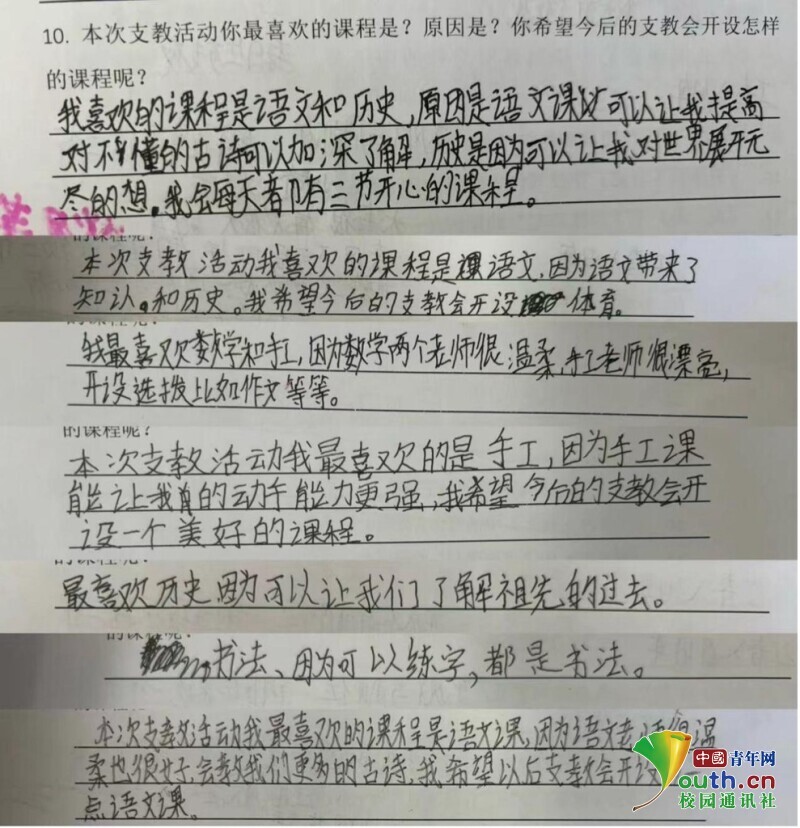 10. 本次支教活动你最喜欢的课程是？原因是？你希望今后的支教会开设怎样
的课程呢？
我喜欢的课程是语文和历史，原因是语文课 可以让我提高
对不懂的古诗可以加深了解，历史是因为可以让我对世界展开无
尽的想。我会每天都有三节开心的课程。
的课程呢？
本次支教活动我喜欢的课程是语文，因为语文带来了
知认。和历史。我希望今后的支教会开设 体育。
我最喜欢数学和手工，因为数学两个老师很温柔，手工老师很漂亮，
开设选拔比如作文等等。
的课程呢？
本次支教活动我最喜欢的是手工，因为手工课
能让我 的动手能力更强，我希望今后的支教会开
设一个美好的课程。
的课程呢？
最喜欢历史因为可以让我们了解祖先的过去。
的课程呢？
书法、因为可以练字，都是书法。
本次支教活动我最喜欢的课程是语文课，因为语文老师很温
柔也很好，会教我们更多的古诗，我希望以后支教会开设
点语文课。
中国青年网
Youth.cn
校园通讯社